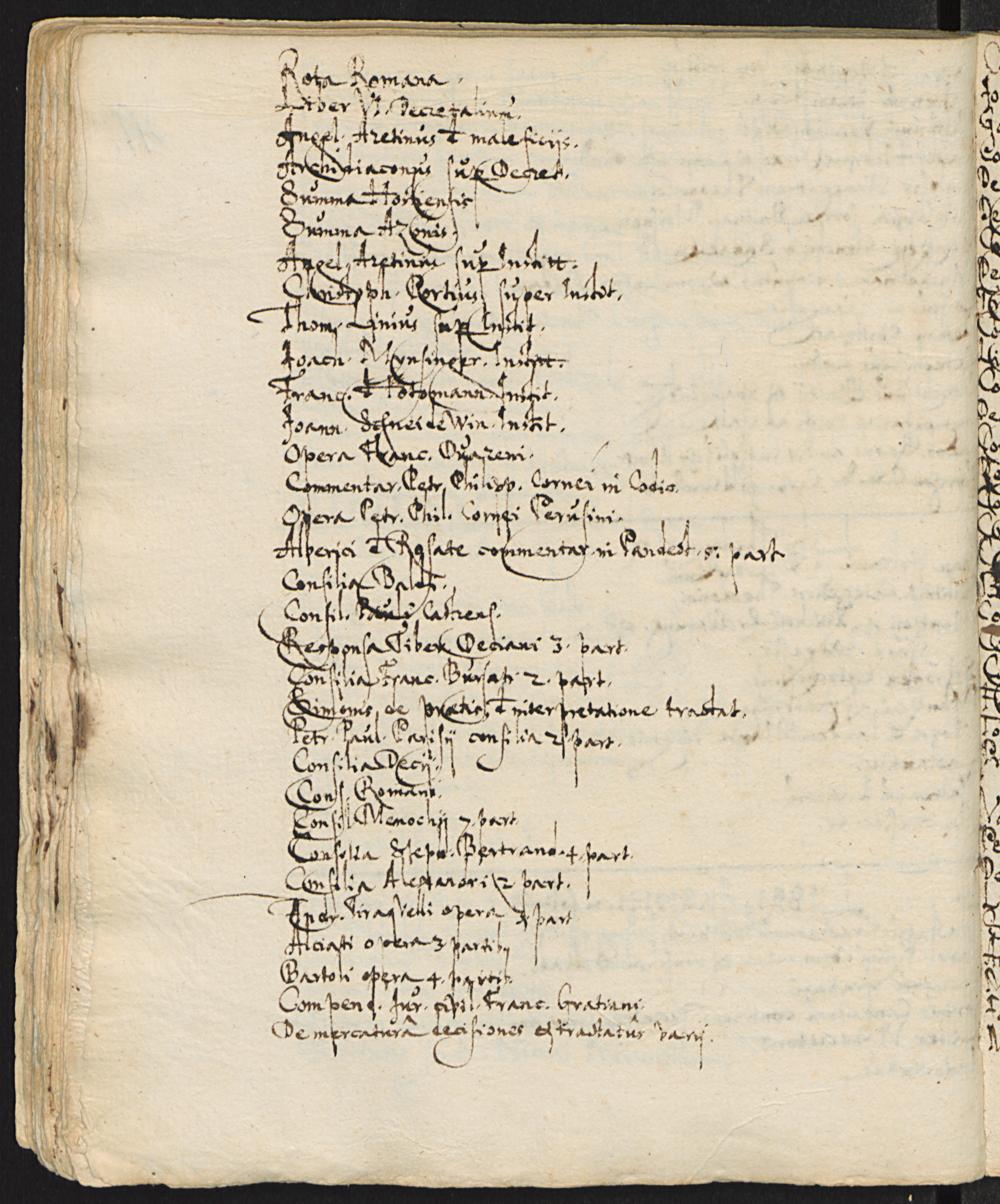 Rota Romana.
Liber VI. Decretalium.
Angel. Aretinus de maleficijs.
Archidiaconus sup Decret.
Summa Hostiensis
Summa Azonis.
Angel. Aretinus sup Instit.
Christoph. Portius super Instit.
Thom. Linius sup Instit.
Joach. Mynsinger. Instit.
Franc. Hotomann. Instit.
Joann. Schneidewin. Instit.
Opera Franc. Duareni.
Commentar. Petr. Philipp. Cornei in Codic.
Opera Petr. Phil. Cornei Perusini.
Alberici de Rosate commentar. in Pandect. 5. part
Consilia Baldi.
Consil. Pauli Castrens.
Responsa Tiber. Deciani 3. part.
Consilia Franc. Bursati 2. part.
Simonis de Praetis, de interpretatione tractat.
Petr. Paul. Parisij consilia 2. part.
Consilia Decij.
Cons. Romani.
Consil. Menochij 7. part
Consilia Steph. Bertrand. 4. part.
Consilia Alexandri 2 part.
Andr. Tiraquelli opera part
Alciati opera 3 partib
Bartoli opera 4. partib.
Compend. Jur. civil. Franc. Gratiani.
De mercaturâ decisiones et tractatus varij.